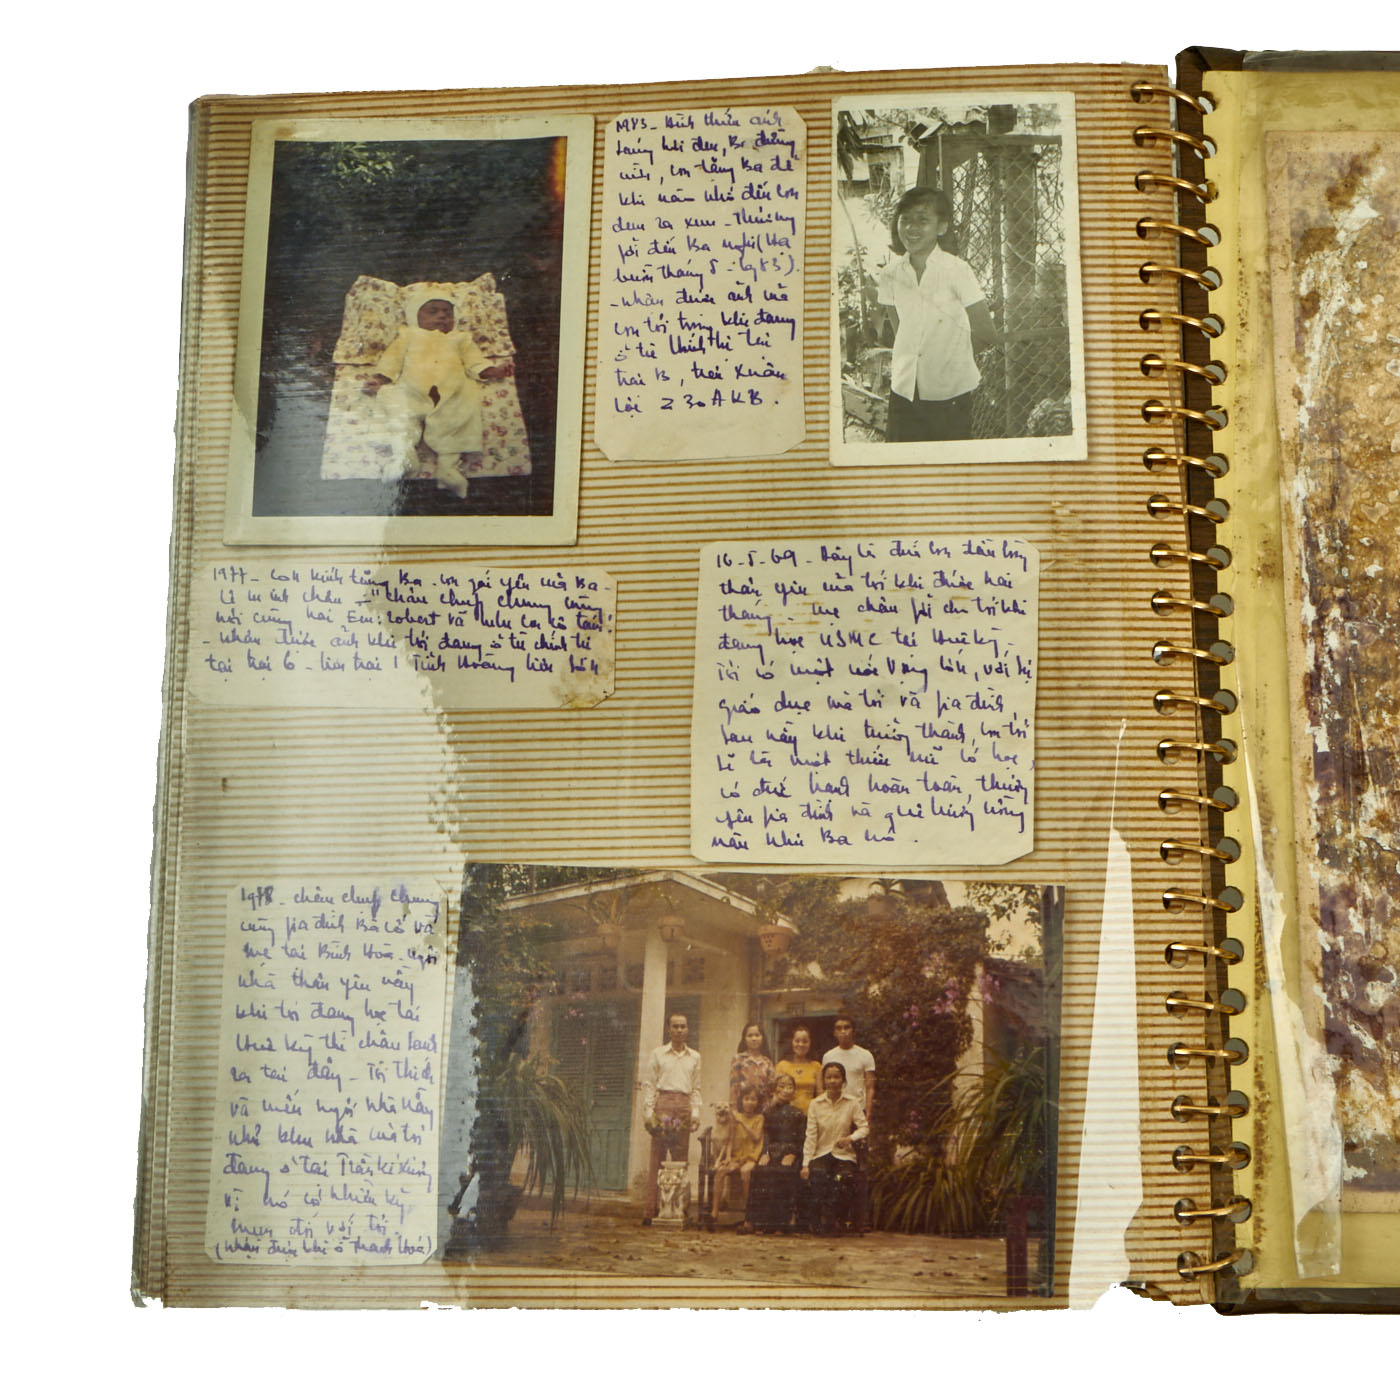 1983 - Hình thiếu ảnh
khi đen, Ba đừng
, con tặng Ba để
khi nào nhớ đến con
đem ra xem - thương
gởi đến Ba nghi
tháng 8 - 1983).
- nhận được ảnh mà
con tôi trong khi đang
ở tù tại
trại B, trại Xuân
Lộc Z30A KB.
1977 - Con kính tặng Ba - con gái yêu của Ba -
Lê Minh Châu - "Châu chụp chung cùng
cùng hai Em: Robert và
- nhận được ảnh khi tôi đang ở tù chính trị
tại trại 6 - liên trại 1 Tỉnh Hoàng liên Sơn
16-5-69 - Đây là đứa con đầu lòng
thân yêu của tôi khi được hai
tháng - mẹ châu gởi cho tôi khi
đang học USMC tại Huê kỳ -
Tôi có một nổi vọng lớn, với sự
giáo dục của tôi và gia đình,
sau này khi trưởng thành, con tôi
sẽ là một thiếu nữ có học,
có đức hạnh hoàn toàn, thương
yêu gia đình và quê hương nồng
nàn như Ba nó.
1978 - châu chụp chung
cùng gia đình Bà cố và
mẹ tại Bình Hòa - ngôi
nhà thân yêu này
khi tôi đang học tại
Huê kỳ thì châu sanh
ra tại đây - Tôi thích
và mến ngôi nhà này
như khu nhà của tôi
đang ở tại
vì nó có nhiều kỷ
niệm đối với tôi.
(nhận được khi ở Thanh Hóa)